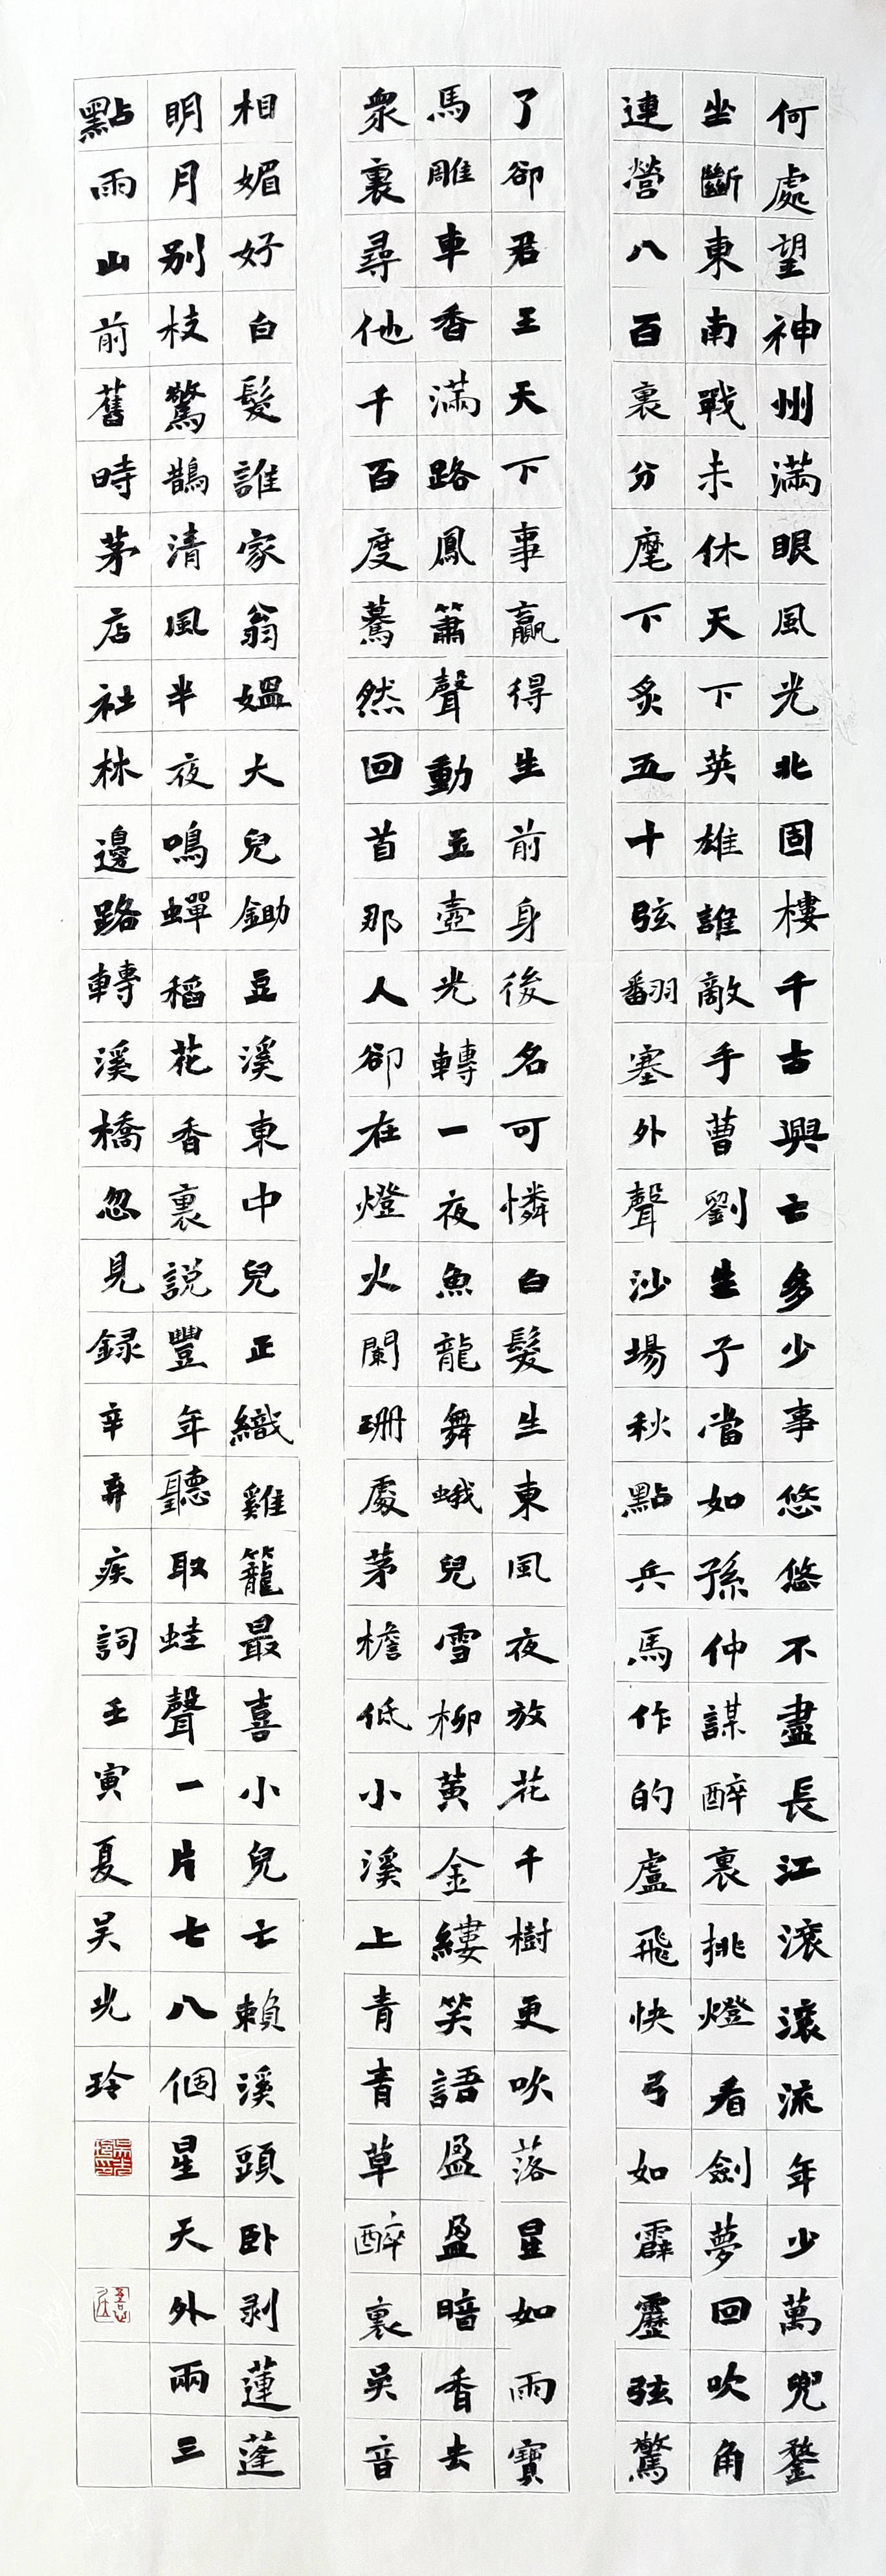 何處望神州滿眼風光北固樓千古興亡多少事悠悠不盡長江滾滾流年少萬兜鍪
坐斷東南戰未休天下英雄誰敵手曹劉生子當如孫仲謀醉裏挑燈看劍夢回吹角
連營八百裏分麾下炙五十弦翻塞外聲沙場秋點兵馬作的盧飛快弓如霹靂弦驚
了卻君王天下事贏得生前身後名可憐白髮生東風夜放花千樹更吹落星如雨寶
馬雕車香滿路鳳簫聲動玉壺光轉一夜魚龍舞蛾兒雪柳黃金縷笑語盈盈暗香去
衆裏尋他千百度驀然回首那人卻在燈火闌珊處茅檐低小溪上青青草醉裏吳音
相媚好白髮誰家翁媼大兒鋤豆溪東中兒正織雞籠最喜小兒亡賴溪頭卧剝蓮蓬
明月別枝驚鵲清風半夜鳴蟬稻花香裏説豐年聽取蛙聲一片七八個星天外兩三
點雨山前舊時茅店社林邊路轉溪橋忽見録辛弃疾詞壬寅夏吳光玲